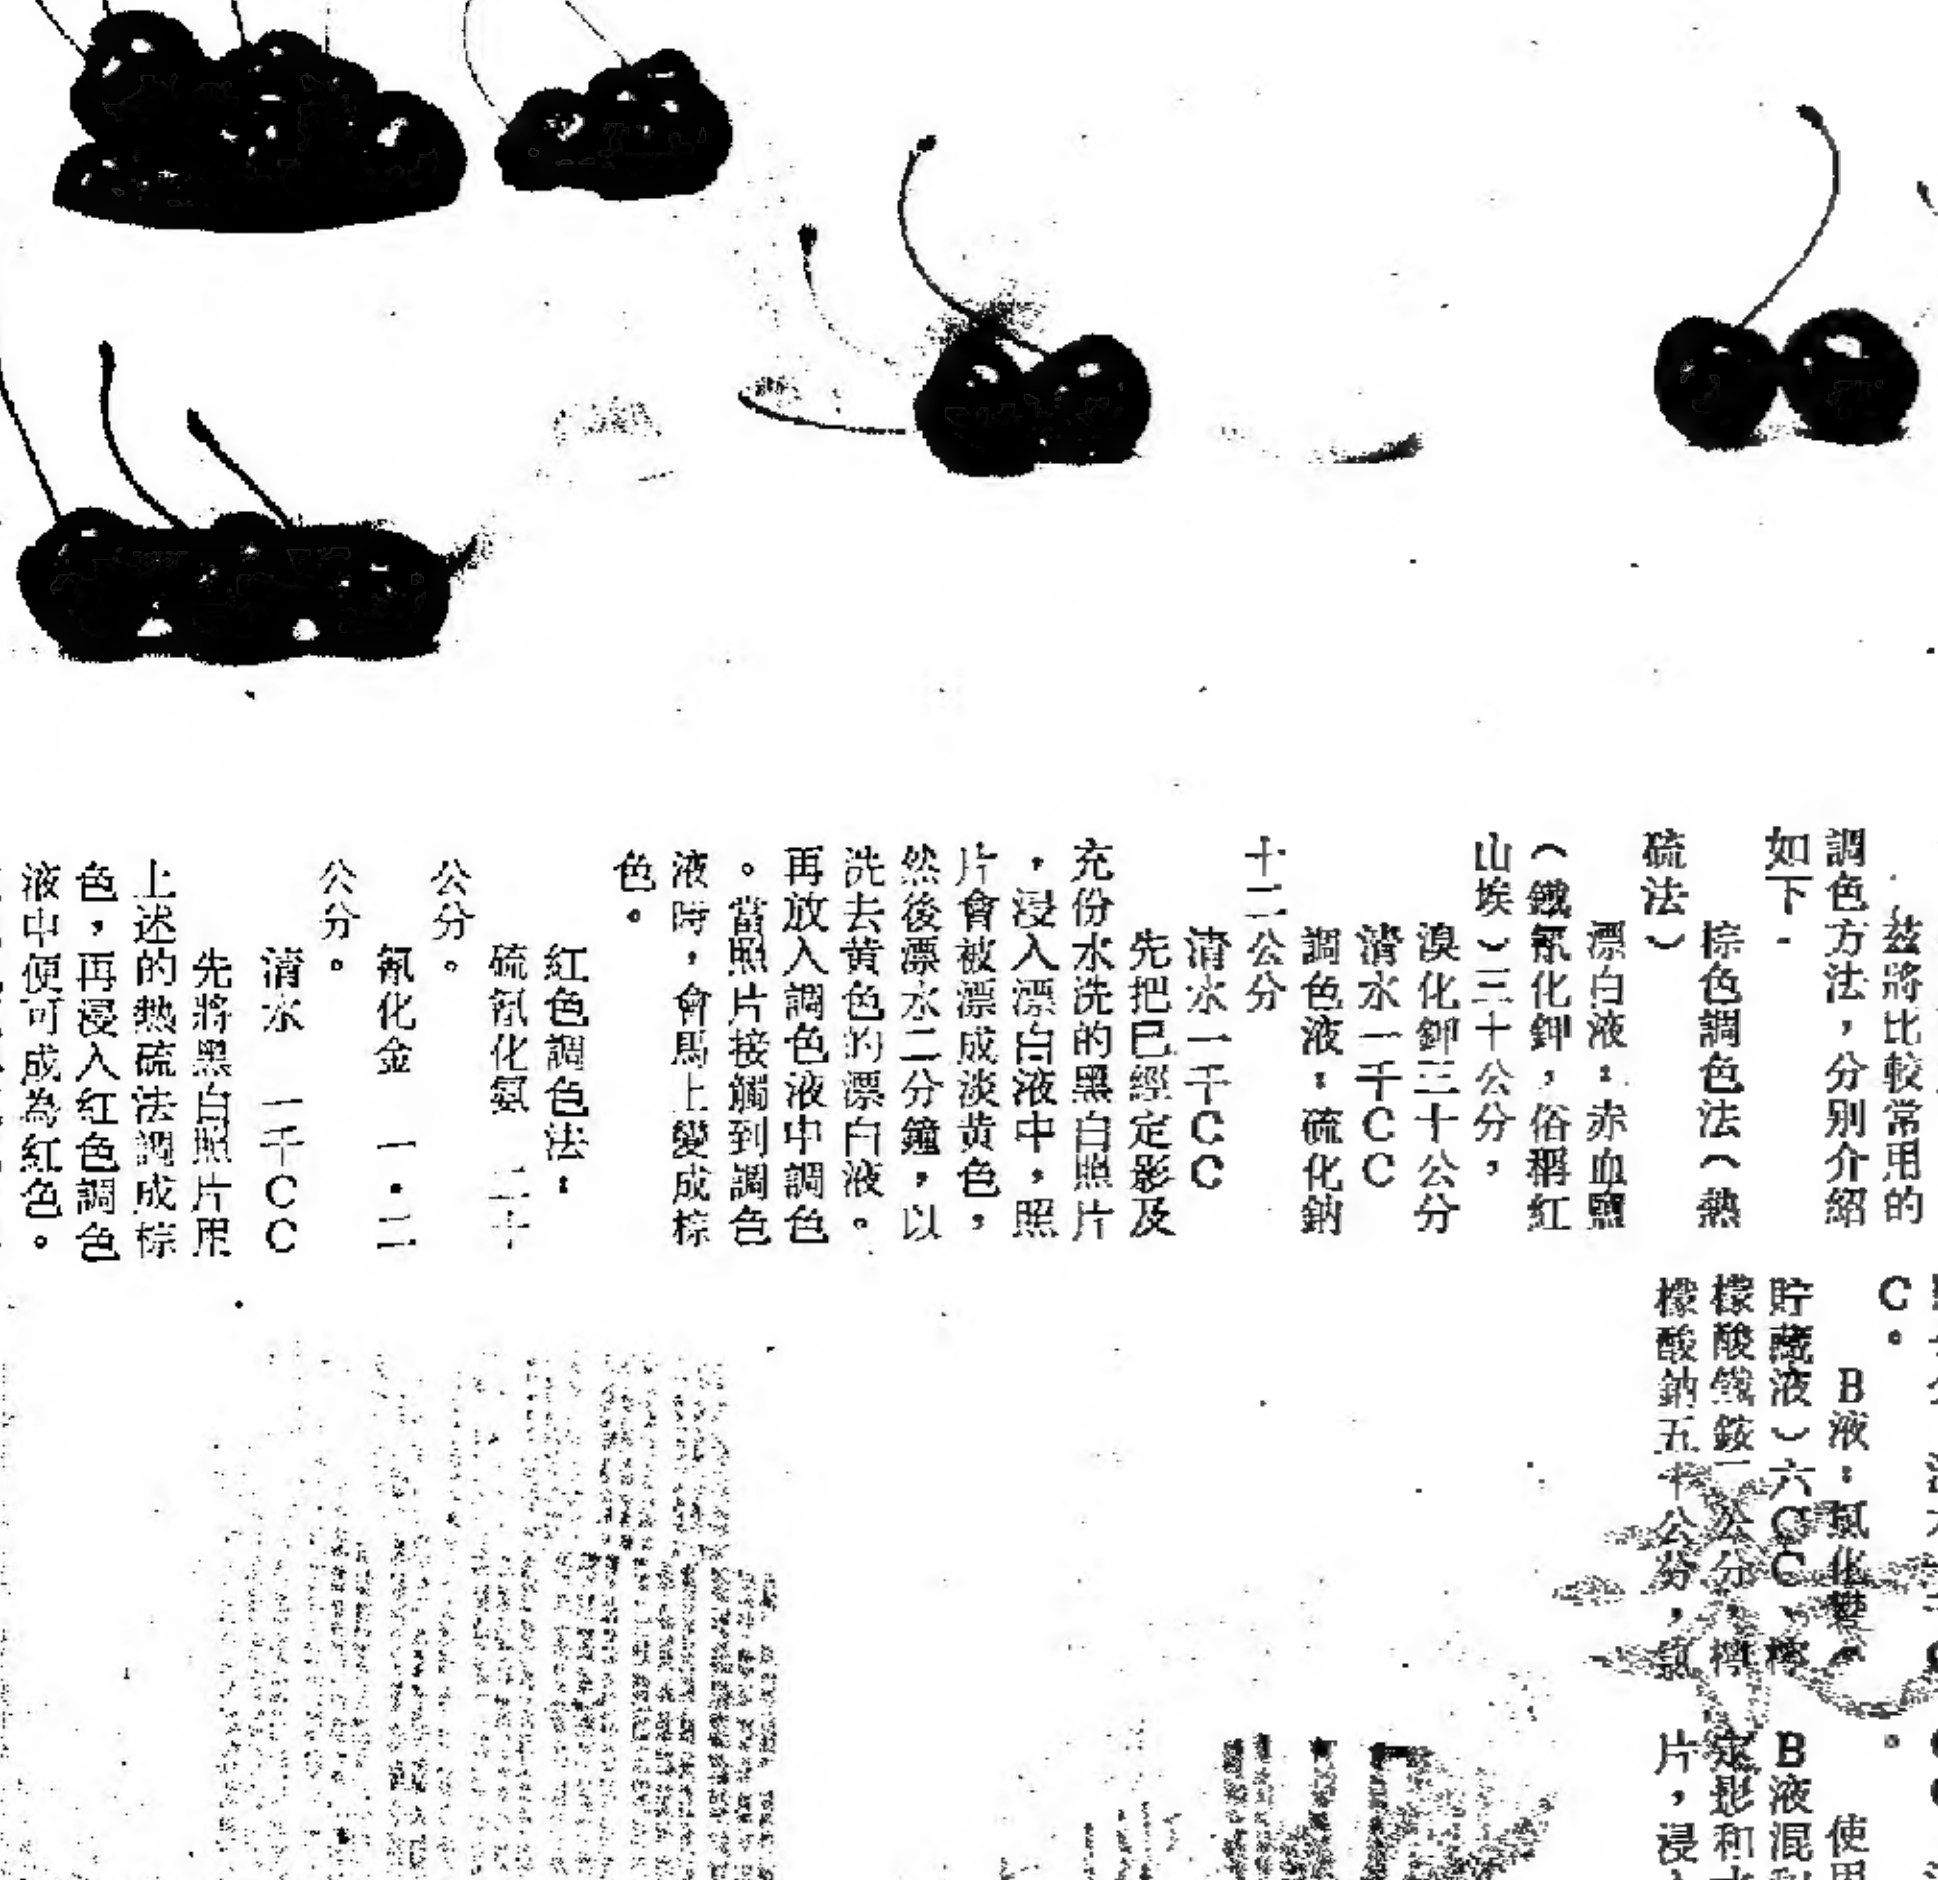 茲將比較常用的
調色方法，分別介紹
如下．
棕色調色法（熱
硫法）
漂白液：赤血鹽
（鐵氰化鉀，俗稱紅
山埃）三十公分，
溴化鉀三十公分
清水一千CC
調色液：硫化鈉
十二公分
清水一千CC
先把已經定影及
充份水洗的黑白照片
，浸入漂白液中，照
片會被漂成淡黄色，
然後漂水二分鐘，以
洗去黄色的漂白液。
再放入調色液中調色
。當照片接觸到調色
液時，會馬上變成棕
色。
紅色調色法：
硫氰化氨　二十
公分。
氰化金　一．二
公分。
清水　一千CC
先將黑白照片用
上述的熱硫法調成棕
色，再浸入紅色調色
液中便可成為紅色。
C。
B液：氯化
貯藏液）六CC、檬
檬酸鐵銨一公分，檸
檬酸鈉五十公分，
使用
B液混和
定影和水
片，浸入